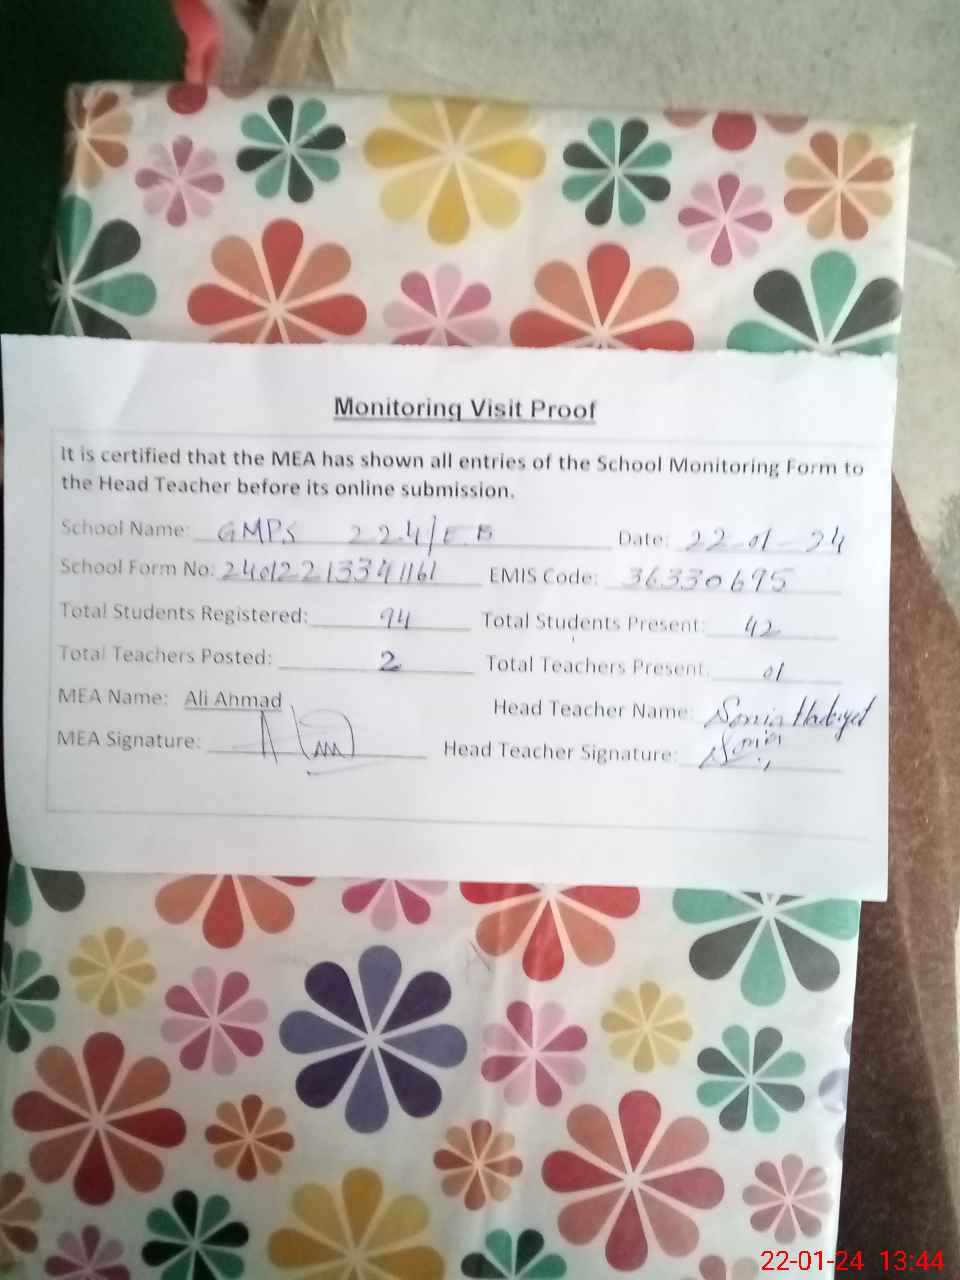 Monitoring Visit Proof
It is certified that the MEA has shown all entries of the School Monitoring Form to
the Head Teacher before its online submission.
School Name: GMPS 224/E.B Date: 22-01-24
School Form No: 24012213341161 EMIS Code: 36330695
Total Students Registered: 94 Total Students Present: 42
Total Teachers Posted: 2 Total Teachers Present: 01
MEA Name: Ali Ahmad Head Teacher Name: Sonia
MEA Signature: Head Teacher Signature: Sonia
22-01-24 13:44